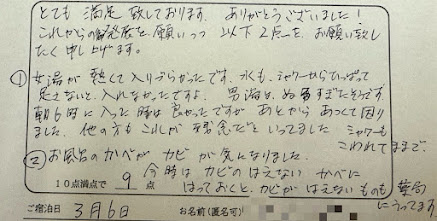 とても 満足 致しております。ありがとうございました！
これからの御発展を 願いつつ 以下2点を お願い致し
たく申し上げます。
① 女湯が 熱くて入りづらかったです。水も、シャワーからひっぱって
足さないと、入れなかったですよ。男湯は、ぬるすぎたそうです。
朝6時に入った時は 良かったですが あとから あつくて困り
ました。他の方も これが 残念だと いってました シャワーも
こわれてままで、
② お風呂の かべが カビ が 気になりました。
10点満点で 9 点 今時は カビの はえない かべに
はっておくと、カビが はえないものも 薬局
にうってます
ご宿泊日 3月6日 お名前(匿名可)